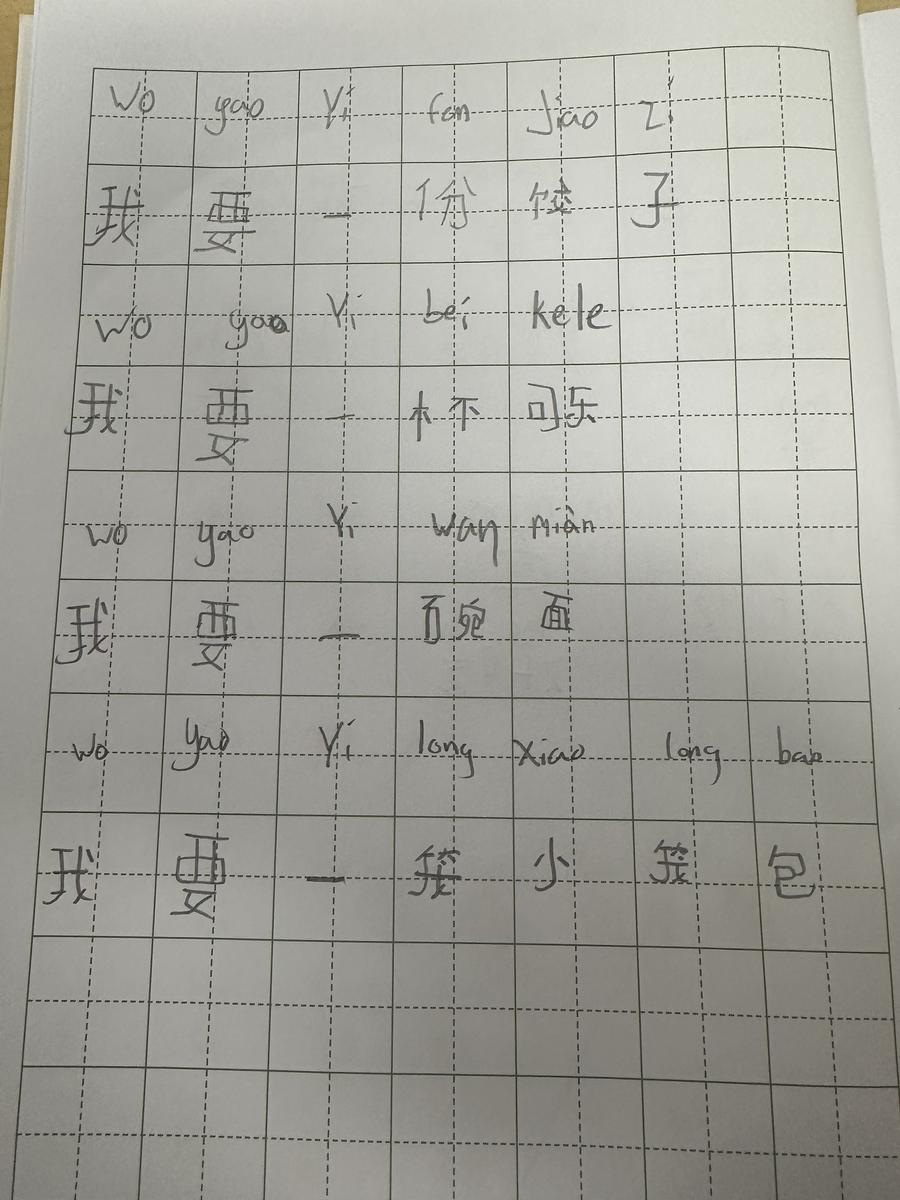 Wo yao Yi fen Jiao Zi
我 要 一 份 饺 子
Wo yao Yi bei kele
我 要 一 杯 可乐
wo yao Yi wan miàn
我 要 一 碗 面
Wo yao Yi long xiao long bao
我 要 一 笼 小 笼 包